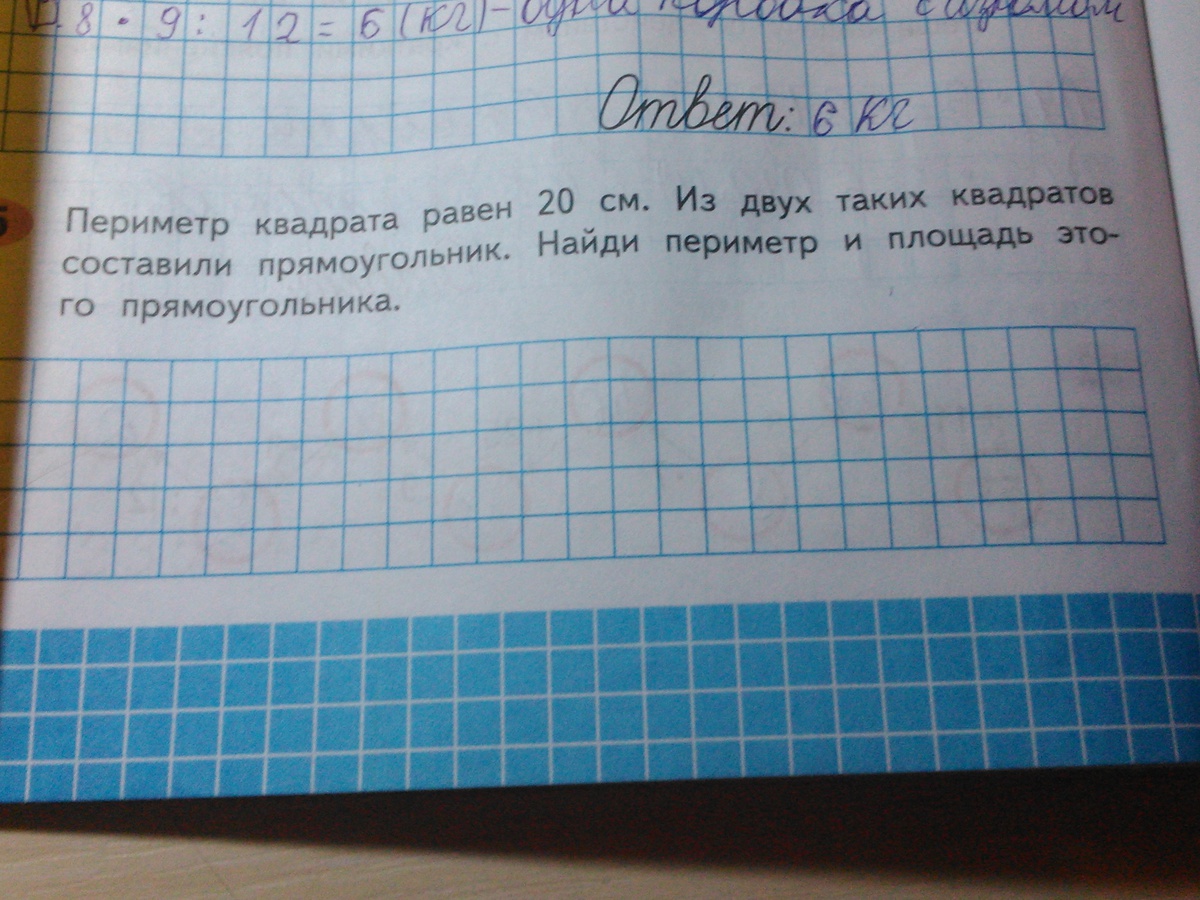 8 · 9 : 12 = 6 (кг) - одна коробка с
Ответ: 6 кг
Периметр квадрата равен 20 см. Из двух таких квадратов
составили прямоугольник. Найди периметр и площадь это-
го прямоугольника.